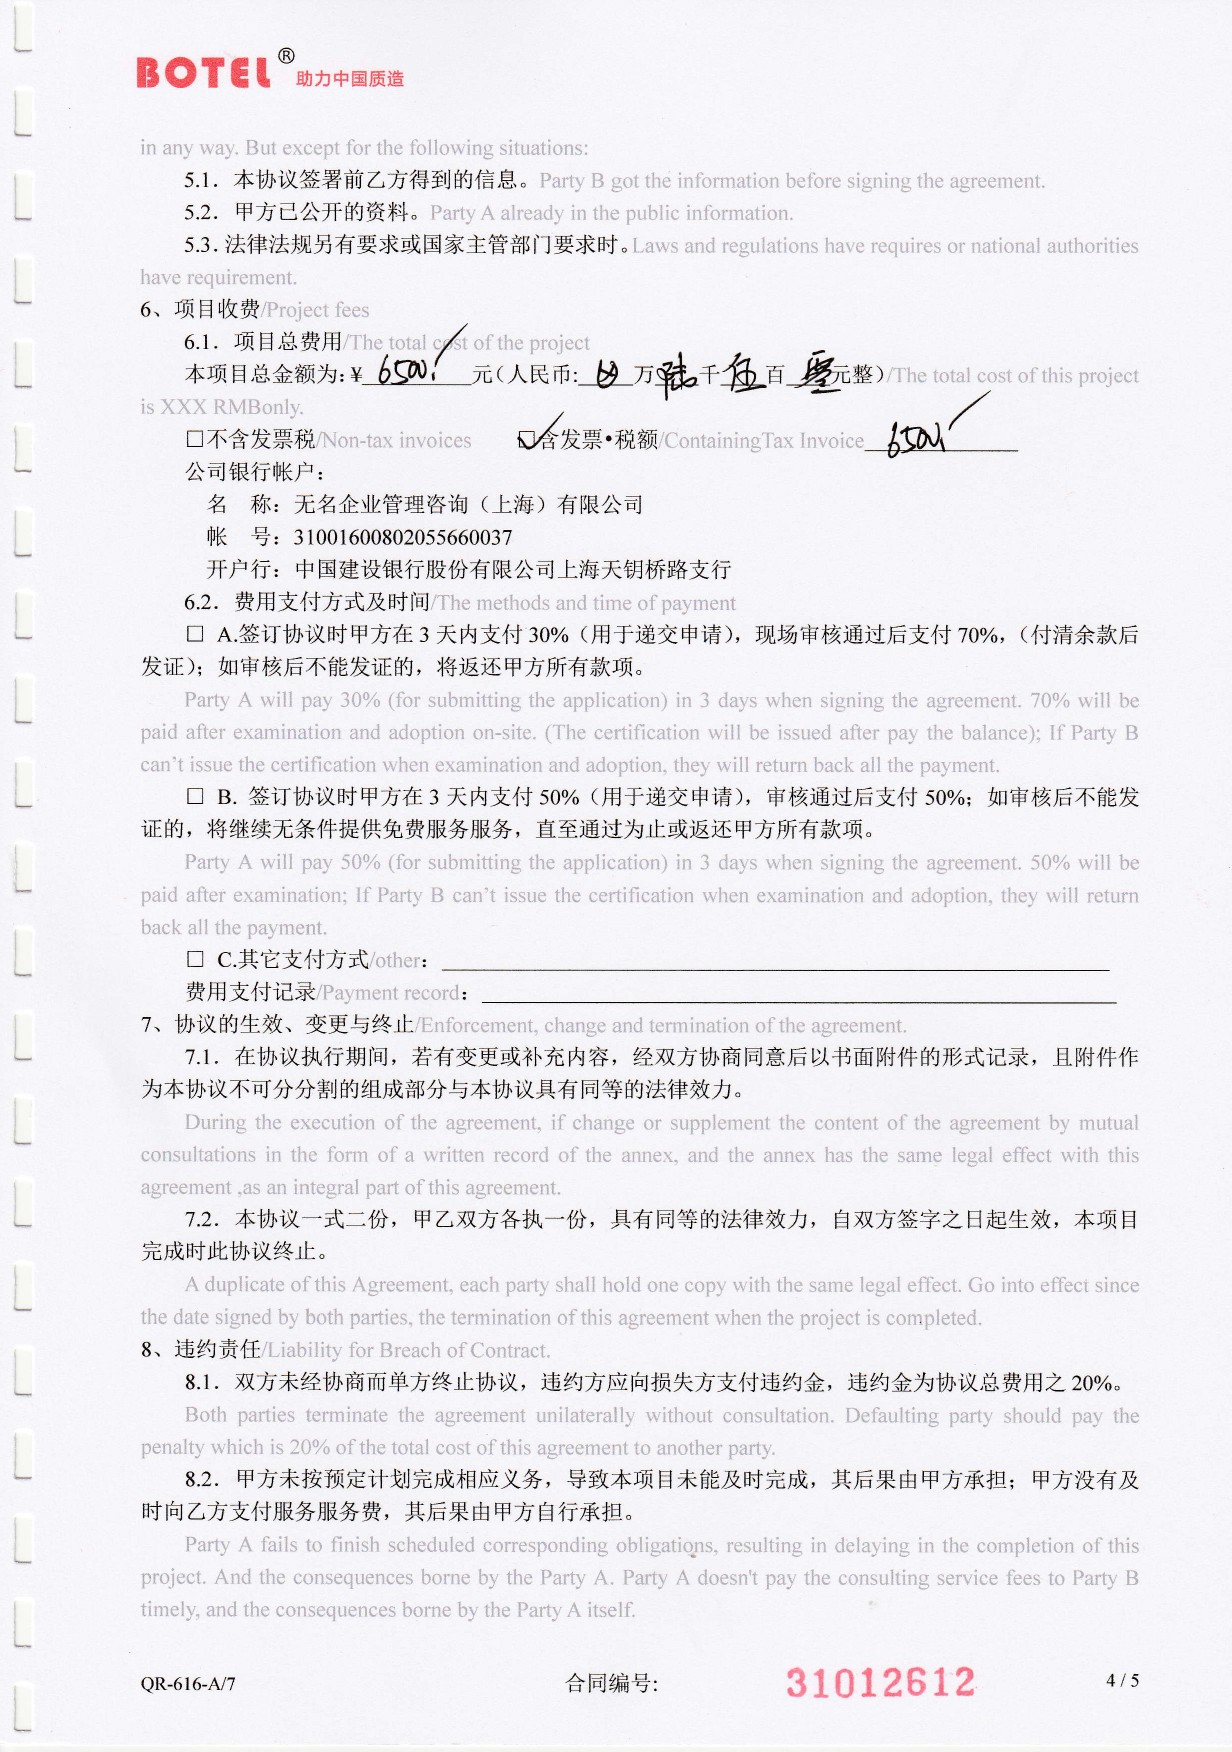 BOTEL® 助力中国质造
in any way. But except for the following situations:
5.1．本协议签署前乙方得到的信息。Party B got the information before signing the agreement.
5.2．甲方已公开的资料。Party A already in the public information.
5.3．法律法规另有要求或国家主管部门要求时。Laws and regulations have requires or national authorities
have requirement.
6、项目收费/Project fees
6.1．项目总费用/The total cost of the project
本项目总金额为:¥ 6500 元（人民币: 万陆千伍百零元整）/The total cost of this project
is XXX RMBonly.
□不含发票税/Non-tax invoices ☑含发票•税额/ContainingTax Invoice 6500
公司银行帐户：
名 称：无名企业管理咨询（上海）有限公司
帐 号：31001600802055660037
开户行：中国建设银行股份有限公司上海天钥桥路支行
6.2．费用支付方式及时间/The methods and time of payment
□ A.签订协议时甲方在 3 天内支付 30%（用于递交申请），现场审核通过后支付 70%，（付清余款后
发证）；如审核后不能发证的，将返还甲方所有款项。
Party A will pay 30% (for submitting the application) in 3 days when signing the agreement. 70% will be
paid after examination and adoption on-site. (The certification will be issued after pay the balance); If Party B
can't issue the certification when examination and adoption, they will return back all the payment.
□ B. 签订协议时甲方在 3 天内支付 50%（用于递交申请），审核通过后支付 50%；如审核后不能发
证的，将继续无条件提供免费服务服务，直至通过为止或返还甲方所有款项。
Party A will pay 50% (for submitting the application) in 3 days when signing the agreement. 50% will be
paid after examination; If Party B can't issue the certification when examination and adoption, they will return
back all the payment.
□ C.其它支付方式/other：
费用支付记录/Payment record：
7、协议的生效、变更与终止/Enforcement, change and termination of the agreement.
7.1．在协议执行期间，若有变更或补充内容，经双方协商同意后以书面附件的形式记录，且附件作
为本协议不可分分割的组成部分与本协议具有同等的法律效力。
During the execution of the agreement, if change or supplement the content of the agreement by mutual
consultations in the form of a written record of the annex, and the annex has the same legal effect with this
agreement ,as an integral part of this agreement.
7.2．本协议一式二份，甲乙双方各执一份，具有同等的法律效力，自双方签字之日起生效，本项目
完成时此协议终止。
A duplicate of this Agreement, each party shall hold one copy with the same legal effect. Go into effect since
the date signed by both parties, the termination of this agreement when the project is completed.
8、违约责任/Liability for Breach of Contract.
8.1．双方未经协商而单方终止协议，违约方应向损失方支付违约金，违约金为协议总费用之 20%。
Both parties terminate the agreement unilaterally without consultation. Defaulting party should pay the
penalty which is 20% of the total cost of this agreement to another party.
8.2．甲方未按预定计划完成相应义务，导致本项目未能及时完成，其后果由甲方承担；甲方没有及
时向乙方支付服务服务费，其后果由甲方自行承担。
Party A fails to finish scheduled corresponding obligations, resulting in delaying in the completion of this
project. And the consequences borne by the Party A. Party A doesn't pay the consulting service fees to Party B
timely, and the consequences borne by the Party A itself.
QR-616-A/7 合同编号: 31012612 4 / 5